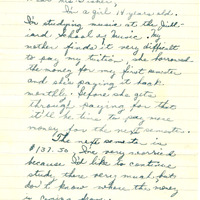 I'm a girl 14 years old.
I'm studying music at the Juill-
iard School of Music. My
mother finds it very difficult
to pay my tuition, she borrowed
the money for my first semester
and she's paying it back
monthly. Before she gets
through paying for that
it'll be time to pay more
money for the next semester.
The next semester is
$137.50. I'm very worried
because I'd like to continue
study there very much but
don't know where the money
is coming from.